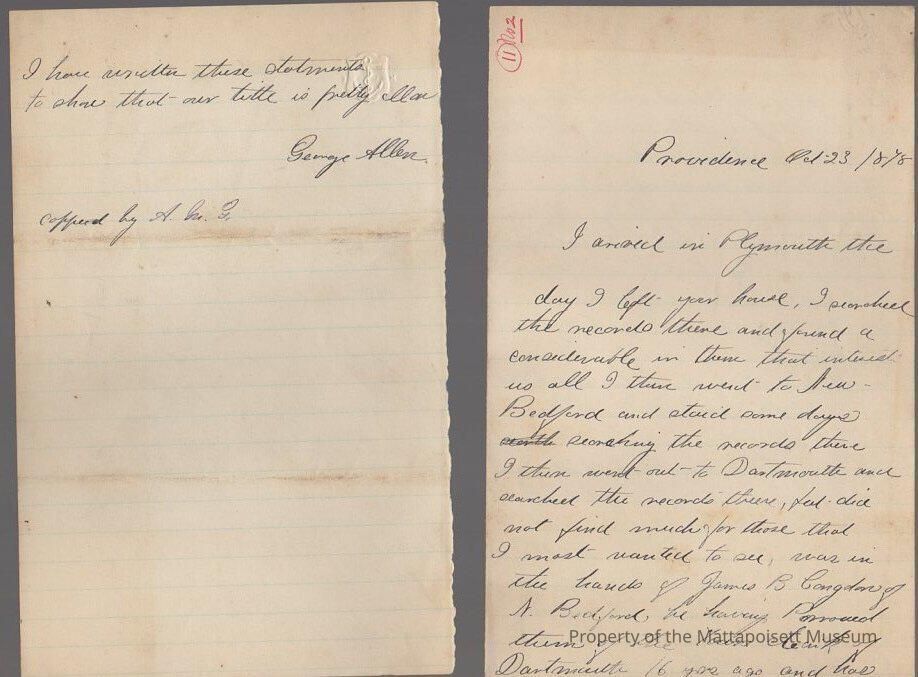 I have written these statments
to show that our title is pretty clear
George Allen.
coppied by A. M. G.
11 No 2
Providence Oct 23 /878
I arived in Plymouth the
day I left your house, I searched
the records there and found a
considerable in them that interest
us all I then went to New-
Bedford and staid some days
searching the records there
I then went out to Dartmouth and
searched the records there, but did
not find much for those that
I most wanted to see, was in
the hands of James B Congdon of
N. Bedford, he having borrowed
them of the town clerk of
Dartmouth 16 yrs ago and has
Property of the Mattapoisett Museum